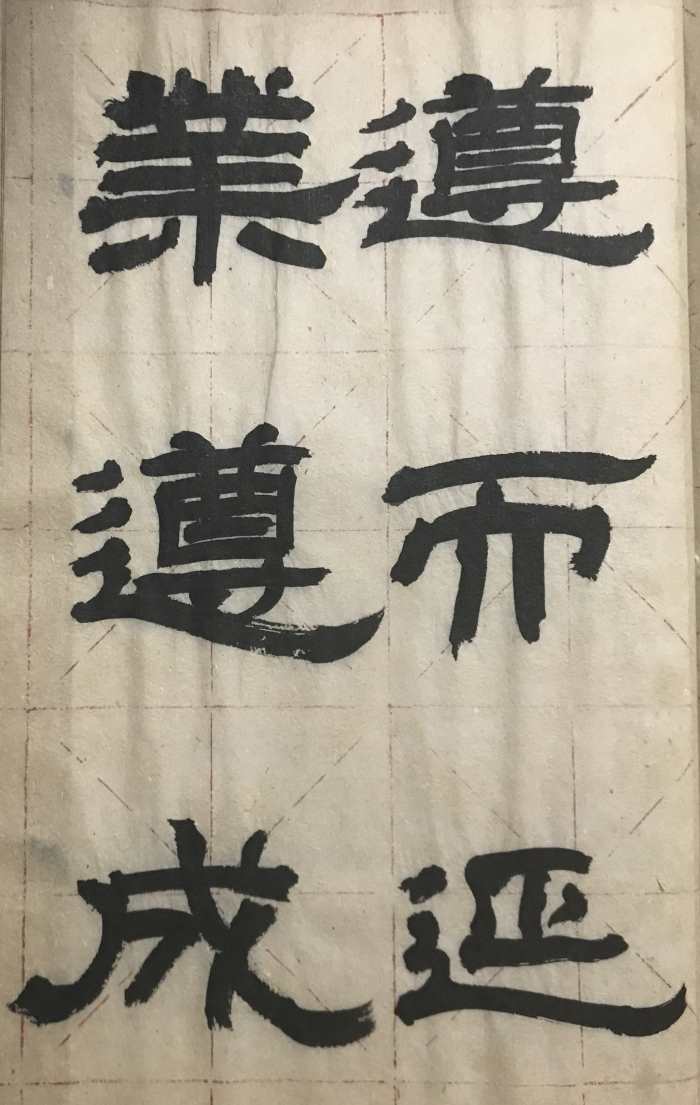 遵而延
業遵成